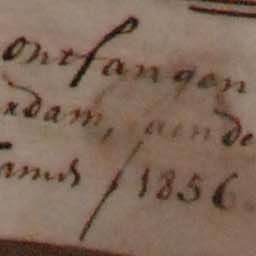 ontfangen
rdam, aende
1856